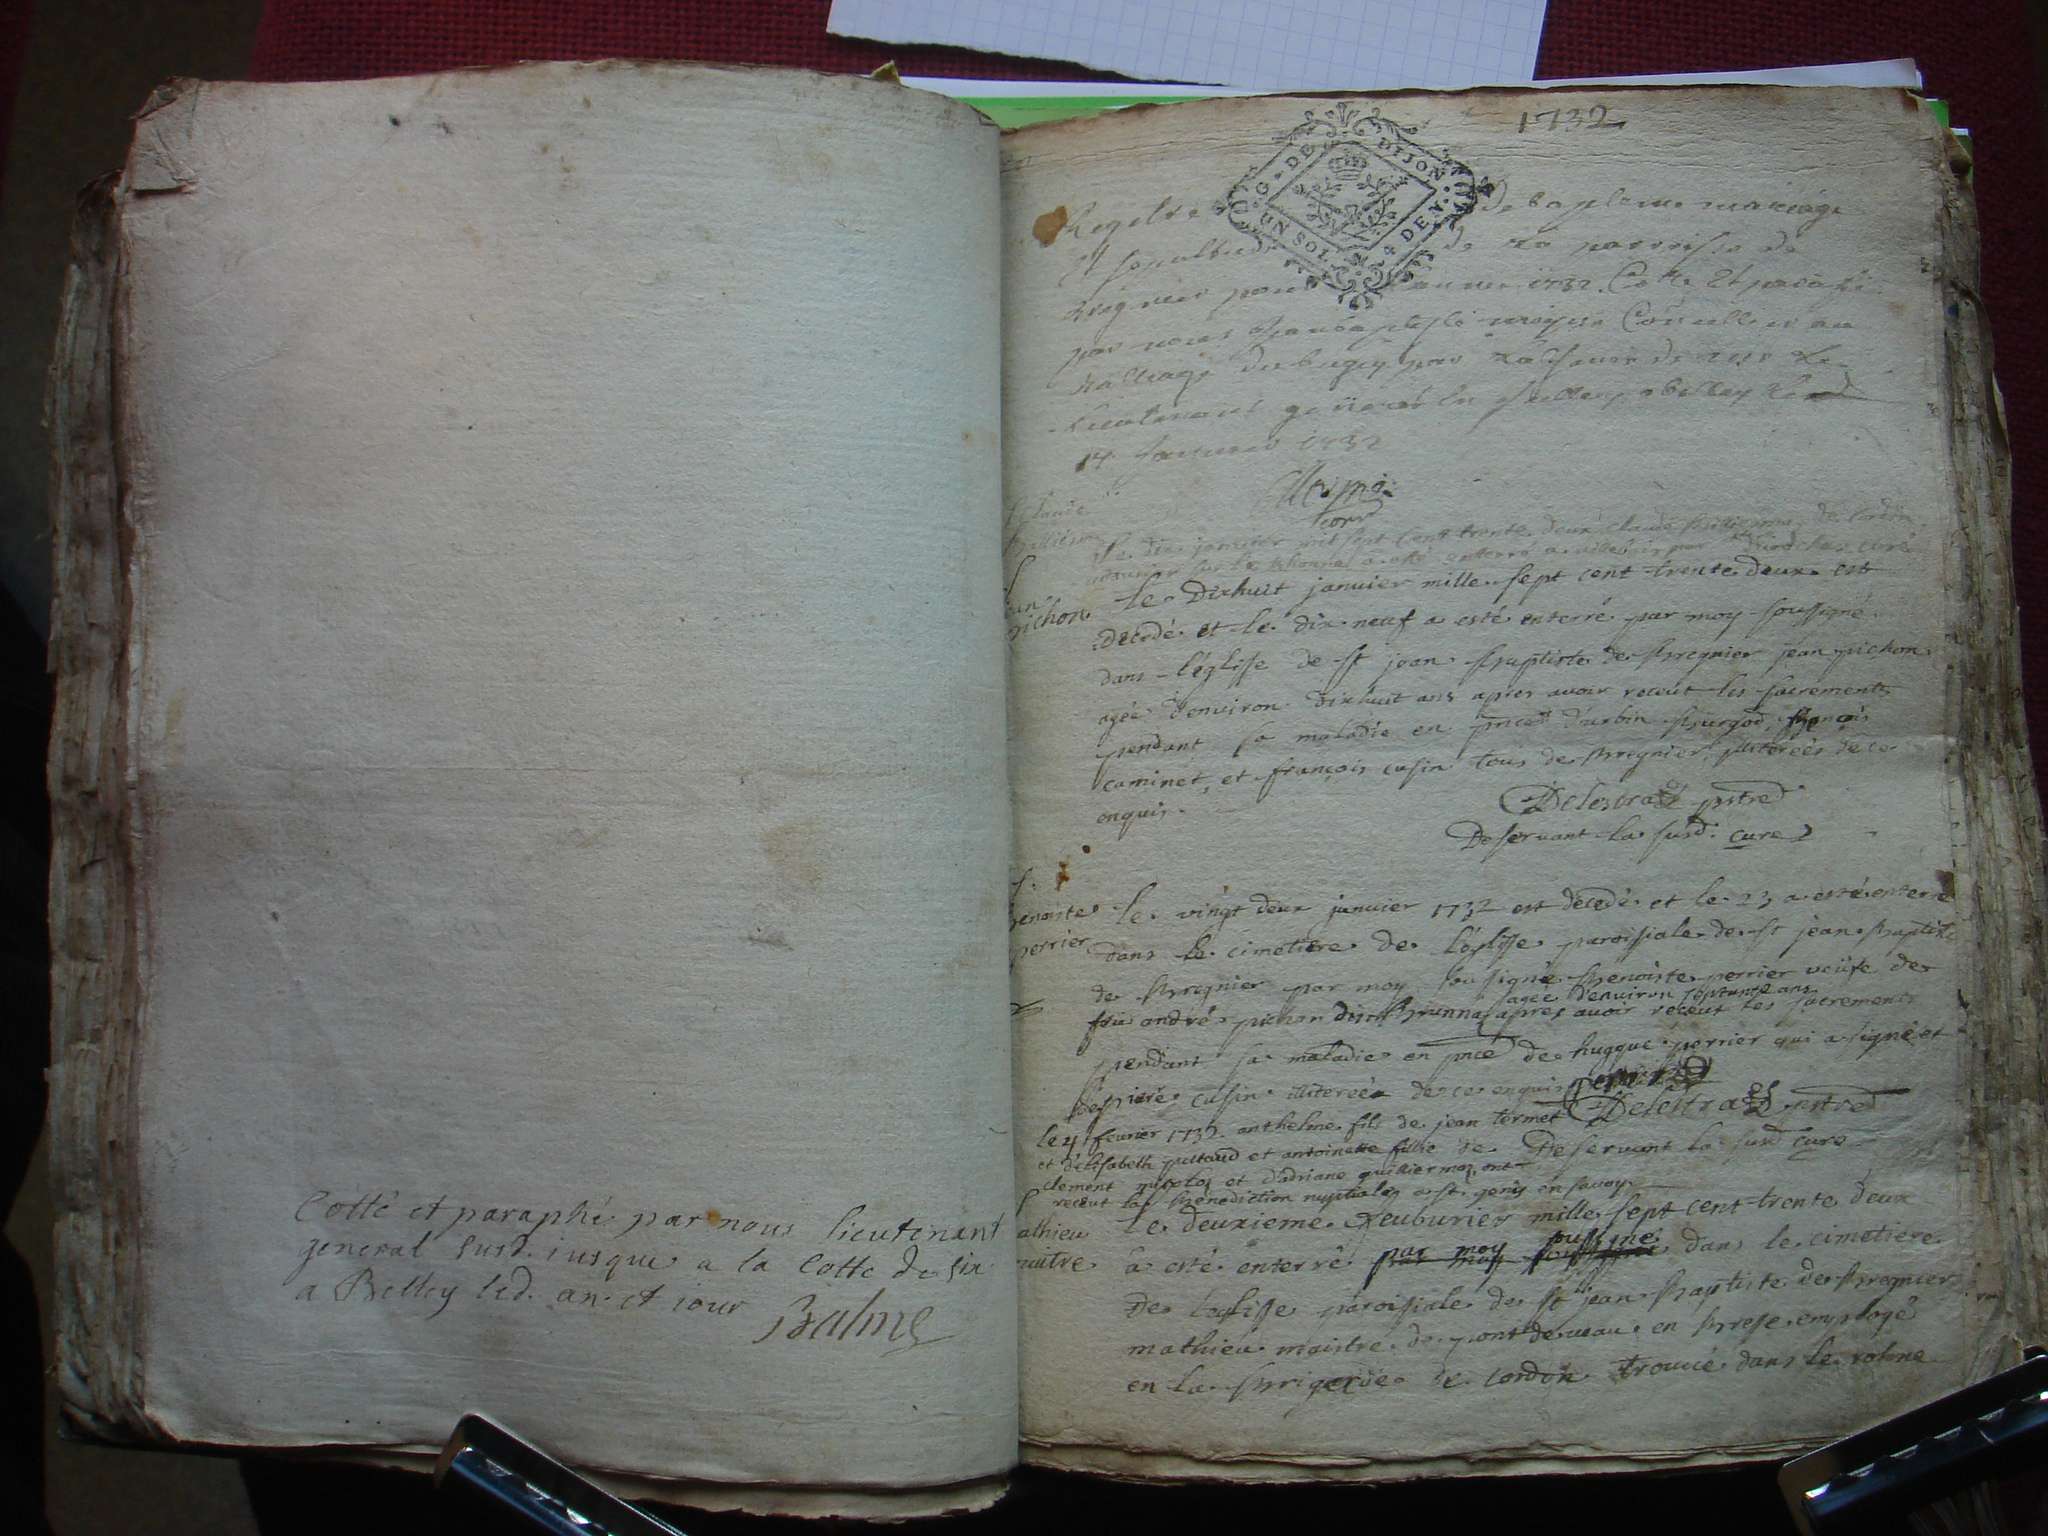 Cotté et paraphé par nous lieutenant
general susd. jusques a la Cotte de six
a Belley led. an et jour Balme
1732
G. DE DIJON
UN SOL 4 DEN.
Registre de baptême mariage
Et sepulture de la parroisse de
bregnier pour l'année 1732. Cotté Et paraphé
par nous Conseiller au
balliage du bugey
Lieutenant general
14 Janvier 1732
Claude
le dix janvier mil sept cent trente deux claude de cordon
sur le Rhone a été enterré a par curé
jean
pichon
le Dixhuit janvier mille sept cent trente deux est
decedé et le dix neuf a esté enterré par moy soussigné
dans l'église de st jean Baptiste de Bregnier jean pichon
agée d'environ dixhuit ans apres avoir receut les sacrements
pendant sa maladie en pnce d'urbin Burgod, françois
caminet, et françois cusin tous de Bregnier illiterées de ce
enquis.
Delestra pstre
Deservant la susd. cure
f.
benoite
perrier
le vingt deux janvier 1732 est decedé et le 23 a esté enterré
dans le cimetiere de l'église paroissiale de st jean Baptiste
de Bregnier par moy sousigné Benoite perrier veufe de
agée d'environ septante ans
feu andré pichon dit Brunna apres avoir receut les sacrements
pendant sa maladie en pnce de hugque perrier qui a signé et
de cusin illiterée de ce enquis perrier
Delestra pstre
Deservant la susd cure
le 4 fevrier 1732 anthelme fils de jean termet
et d'elisabeth pittaud et antoinette fillie de
clement et d'adriane guilliermoz ont
receut la Benediction nuptiale a st. genis en savoy.
mathieu
maitre
le deuxieme feuburier mille sept cent trente deux
a esté enterré par moy soussigné dans le cimetiere
de l'eglisse paroissiale de st jean Baptiste de Bregnier
mathieu maistre de pont de veau en Bresse employé
en la Brigarde de cordon trouvé dans le rohne